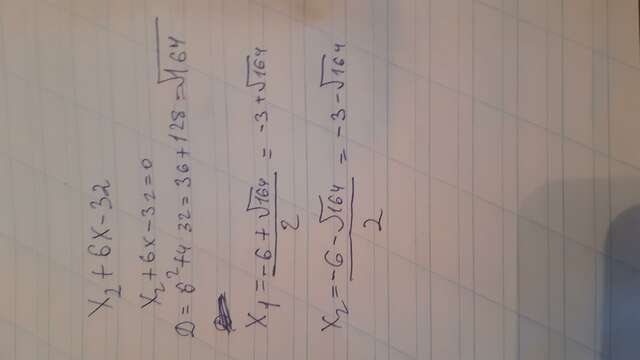 x₂ + 6x - 32
x₂ + 6x - 32 = 0
D = 6² + 4 32 = 36 + 128 = √164
x₁ = (-6 + √164)/2 = -3 + √164
x₂ = (-6 - √164)/2 = -3 - √164